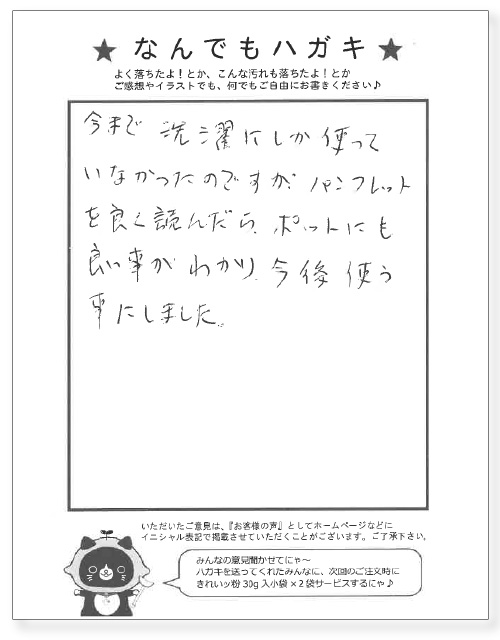 ★ なんでもハガキ ★
よく落ちたよ！とか、こんな汚れも落ちたよ！とか
ご感想やイラストでも、何でもご自由にお書きください♪
今まで 洗濯にしか使って
いなかったのですが、パンフレット
を良く読んだら、ポットにも
良い事がわかり、今後使う
事にしました。
いただいたご意見は、『お客様の声』としてホームページなどに
イニシャル表記で掲載させていただくことがございます。ご了承下さい。
みんなの意見聞かせてにゃ～
ハガキを送ってくれたみんなに、次回のご注文時に
きれいッ粉 30g 入小袋 ×２袋サービスするにゃ♪